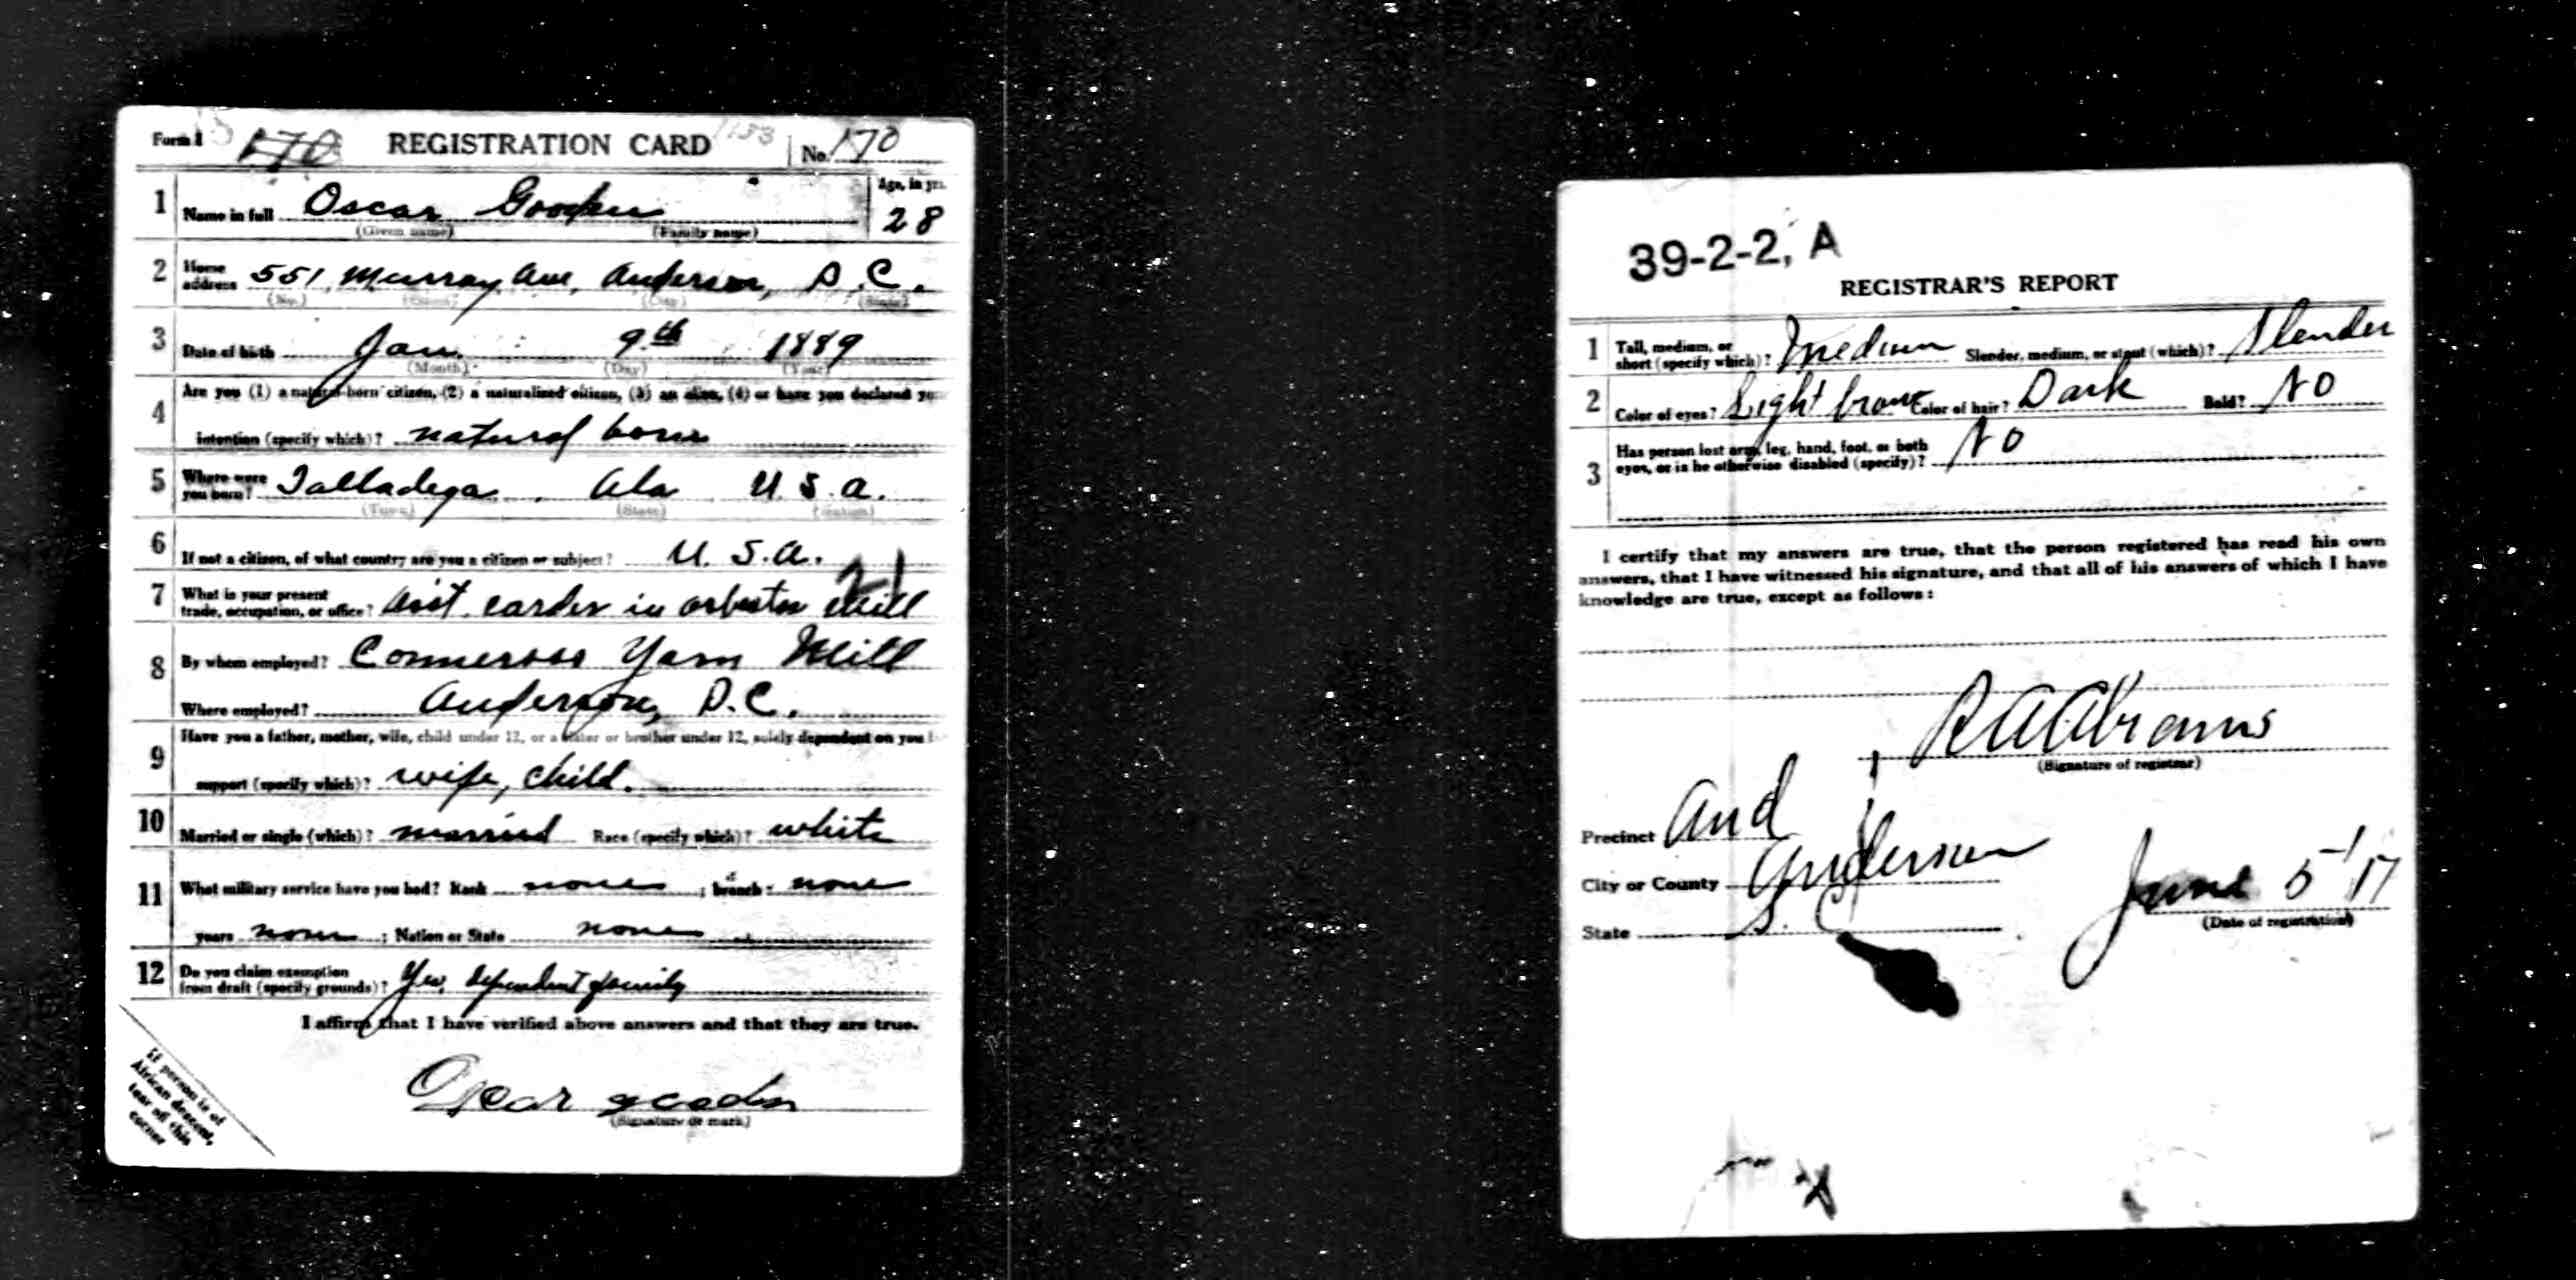 Form 1 170 REGISTRATION CARD 1153 No. 170
1 Name in full Oscar Gooden Age, in yrs. 28
(Given name) (Family name)
2 Home address 551 Murray Ave, Anderson, S.C.
(No.) (Street) (City) (State)
3 Date of birth Jan. 9th 1889
(Month) (Day) (Year)
4 Are you (1) a natural-born citizen, (2) a naturalized citizen, (3) an alien, (4) or have you declared your
intention (specify which)? natural born
5 Where were you born? Talladega Ala U.S.a.
(Town) (State) (Nation)
6 If not a citizen, of what country are you a citizen or subject? U.S.a.
21
7 What is your present trade, occupation, or office? Asst. carder in asbestos mill
8 By whom employed? Conneross Yarn Mill
Where employed? Anderson, S.C.
9 Have you a father, mother, wife, child under 12, or a sister or brother under 12, solely dependent on you for
support (specify which)? wife, child.
10 Married or single (which)? married Race (specify which)? white
11 What military service have you had? Rank none ; branch none
years none ; Nation or State none
12 Do you claim exemption from draft (specify grounds)? Yes, dependent family
I affirm that I have verified above answers and that they are true.
Oscar gooden
(Signature or mark)
If person is of
African descent,
tear off this
corner
39-2-2, A
REGISTRAR'S REPORT
1 Tall, medium, or short (specify which)? Medium Slender, medium, or stout (which)? Slender
2 Color of eyes? Light brown Color of hair? Dark Bald? NO
3 Has person lost arm, leg, hand, foot, or both
eyes, or is he otherwise disabled (specify)? NO
I certify that my answers are true, that the person registered has read his own
answers, that I have witnessed his signature, and that all of his answers of which I have
knowledge are true, except as follows:
R A Abrams
(Signature of registrar)
Precinct And 1
City or County Anderson
State S.C.
June 5 17
(Date of registration)